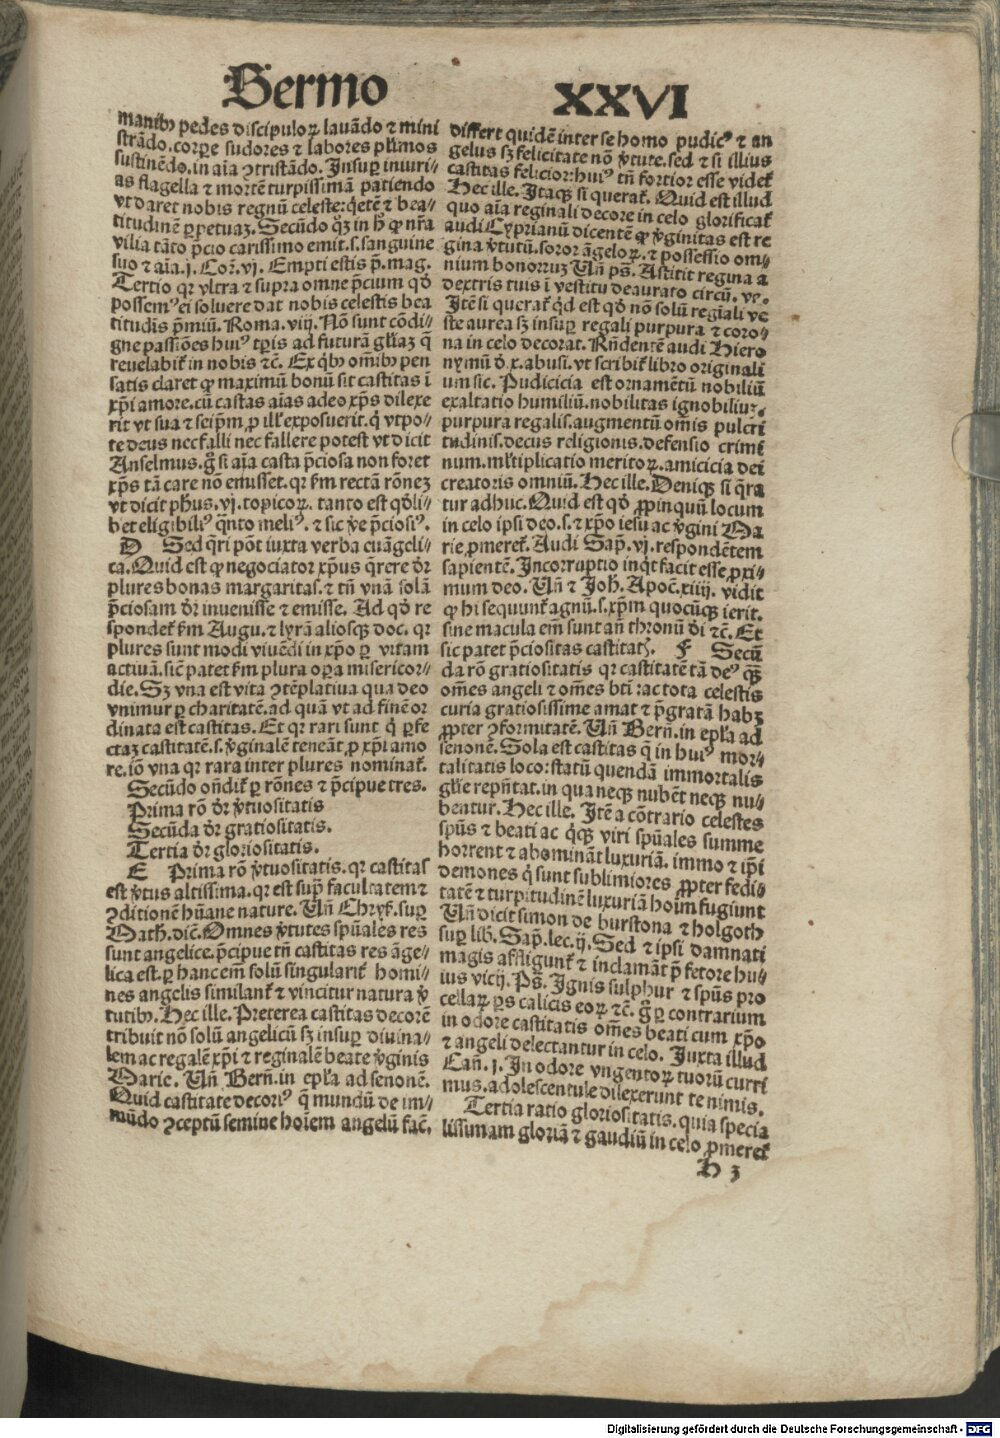 Sermo XXVI
manibꝫ pedes discipuloꝝ lauādo ⁊ mini
strādo.corꝑe sudores ⁊ labores plīmos
sustinēdo.in aīa ꝯtristādo. Insuꝑ iniuri⸗
as flagella ⁊ mortē turpissimā patiendo
vt daret nobis regnū celeste:q̇tē ⁊ bea⸗
titudinē ꝑpetuaꝫ. Secūdo qꝫ in h̓ ꝙ nr̄a
vilia tāto p̄cio carissimo emit.s.sanguine
suo ⁊ aīa.j. Coꝝ.vj. Empti estis p̄.mag.
Tertio qꝛ vltra ⁊ supra omne p̄cium qd̓
possemꝰ ei soluere dat nobis celestis bea
titudīs p̄miū. Roma.viij. Nō sunt cōdi⸗
gne passiōes huiꝰ tꝑis ad futurā gl̓iaꝫ q̄
reuelabit̉ in nobis ⁊c̄. Ex q̇bꝫ om̄ibꝫ pen
satis claret ꝙ maximū bonū sit castitas ī
xp̄i amore.cū castas aīas adeo xp̄s dilexe
rit vt sua ⁊ seip̄m ꝓ ill̓ exposuerit.q̇ vtpo⸗
te deus nec falli nec fallere potest vt dicit
Anselmus.g̊ si aīa casta p̄ciosa non foret
xp̄s tā care nō emisset.qꝛ ẜm rectā rōneꝫ
vt dicit ph̓us.vj.topicoꝝ. tanto est qd̓li⸗
bet eligibiliꝰ q̄nto meliꝰ. ⁊ sic v̄e p̄ciosiꝰ.
D Sed q̄ri pōt iuxta verba euāgeli⸗
ca.Quid est ꝙ negociator xp̄us q̄rere dr̄
plures bonas margaritas.⁊ tn̄ vnā solā
p̄ciosam dr̄ inuenisse ⁊ emisse. Ad qd̓ re
spondet̉ ẜm Augu.⁊ lyrā aliosqꝫ doc. qꝛ
plures sunt modi viuēdi in xp̄o ꝑ vitam
actiuā.sic̄ patet ẜm plura oꝑa misericor⸗
die.Sꝫ vna est vita ꝯtēplatiua qua deo
vnimur ꝑ charitatē.ad quā vt ad finē or
dinata est castitas. Et qꝛ rari sunt q̇ ꝑfe
ctaꝫ castitatē.s.v̓ginalē teneāt ꝓ xp̄i amo
re.iō vna qꝛ rara inter plures nominat̉.
Secūdo on̄dit̉ ꝑ rōnes ⁊ p̄cipue tres.
Prima rō dr̄ v̓tuositatis
Secūda dr̄ gratiositatis.
Tertia dr̄ gloriositatis.
E Prima rō v̓tuositatis.qꝛ castitas
est v̓tus altissima.qꝛ est supͣ facultatem ⁊
ꝯditionē hūane nature. Un̄ Chryẜ.suꝑ
Math.dic̄.Omnes v̓tutes spūales res
sunt angelice.p̄cipue tn̄ castitas res āge⸗
lica est.ꝑ hanc em̄ solū singularit̉ homi⸗
nes angelis similant̉ ⁊ vincitur natura v̓
tutibꝫ. Hec ille. Preterea castitas decorē
tribuit nō solū angelicū sꝫ insuꝑ diuina⸗
lem ac regalē xp̄i ⁊ reginalē beate v̓ginis
Marie. Un̄ Bern̄.in epl̓a ad senonē.
Quid castitate decoriꝰ q̄ mundū de im⸗
mūdo ꝯceptū semine hoīem angelū fac̄.
differt quidē inter se homo pudicꝰ ⁊ an
gelus sꝫ felicitate nō v̓tute.sed ⁊ si illius
castitas felicior:huiꝰ tn̄ fortior esse videt̉
Hec ille. Itaqꝫ si querat̉. Quid est illud
quo aīa reginali decore in celo glorificat̉
audi Cyprianū dicentē ꝙ v̓ginitas est re
gina v̓tutū.soror āgeloꝝ.⁊ possessio om⸗
nium bonorruꝫ Un̄ ps̄. Astitit regina a
dextris tuis ī vestitu deaurato circū. ve.
Itē si querat̉ q̇d est qd̓ nō solū regīali ve
ste aurea sꝫ insuꝑ regali purpura ⁊ coro⸗
na in celo decorat. Rn̄dentē audi Hiero
nymū d̓.x.abusi.vt scribit̉ libro originali
um sic. Pudicicia est ornamētū nobiliū
exaltatio humiliū.nobilitas ignobiliuꝫ.
purpura regalis.augmentū om̄is pulcri
tudinis.decus religionis.defensio crimi
num.ml̓tiplicatio meritoꝝ.amicicia dei
creatoris omniū. Hec ille. Deniqꝫ si q̄ra
tur adhuc.Quid est qd̓ ꝓpinquū locum
in celo ipsi deo.s.⁊ xp̄o iesu ac v̓gini Ma
rie ꝓmeret̉. Audi Sap̄.vj.respondētem
sapientē. Incorruptio inq̇t facit esse ꝓxi⸗
mum deo. Un̄ ⁊ Joh̓. Apoc̄.xiiij. vidit
ꝙ hi sequunt̉ agnū.s.xp̄m quocūqꝫ ierit.
sine macula em̄ sunt an̄ thronū dei ⁊c̄. Et
sic patet p̄ciositas castitatꝭ. F Secū
da rō gratiositatis qꝛ castitatē tā deꝰ qꝫ̄
om̄es angeli ⁊ om̄es bt̄i:ac tota celestis
curia gratiosissime amat ⁊ p̄gratā habꝫ
ꝓpter ꝯformitatē. Un̄ Bern̄.in epl̓a ad
senonē.Sola est castitas q̄ in huiꝰ mor⸗
talitatis loco:statū quendā immortalis
gl̓ie rep̄ntat.in qua neqꝫ nubēt neqꝫ nu⸗
bentur.Hec ille. Itē a cōtrario celestes
spūs ⁊ beati ac q̇qꝫ viri spūales summe
horrent ⁊ abomināt luxuriā. immo ⁊ ip̄i
demones q̇ sunt sublimiores ꝓpter fedi⸗
tatē ⁊ turpitudinē luxuriā hoīm fugiunt
Un̄ dicit simon de burstona ⁊ holgoth
suꝑ lib. Sap̄.lec.ij. Sed ⁊ ipsi damnati
magis affligunt̉ ⁊ inclamāt p̄ fetore hu⸗
ius vicij. Ps̄. Ignis sulphur ⁊ spūs pro
cellaꝝ ꝑs calicis eoꝝ ⁊c̄. g̊ ꝑ contrarium
in odore castitatis om̄es beati cum xp̄o
⁊ angeli delectantur in celo. Juxta illud
Can̄.j. In odore vngentoꝝ tuorū curri
mus.adolescentule dilexerunt te nimis.
Tertia ratio gloriositatis.quia specia
lissimam gloriā ⁊ gaudiū in celo ꝓmeret̉
H 3
Digitalisierung gefördert durch die Deutsche Forschungsgemeinschaft - DFG